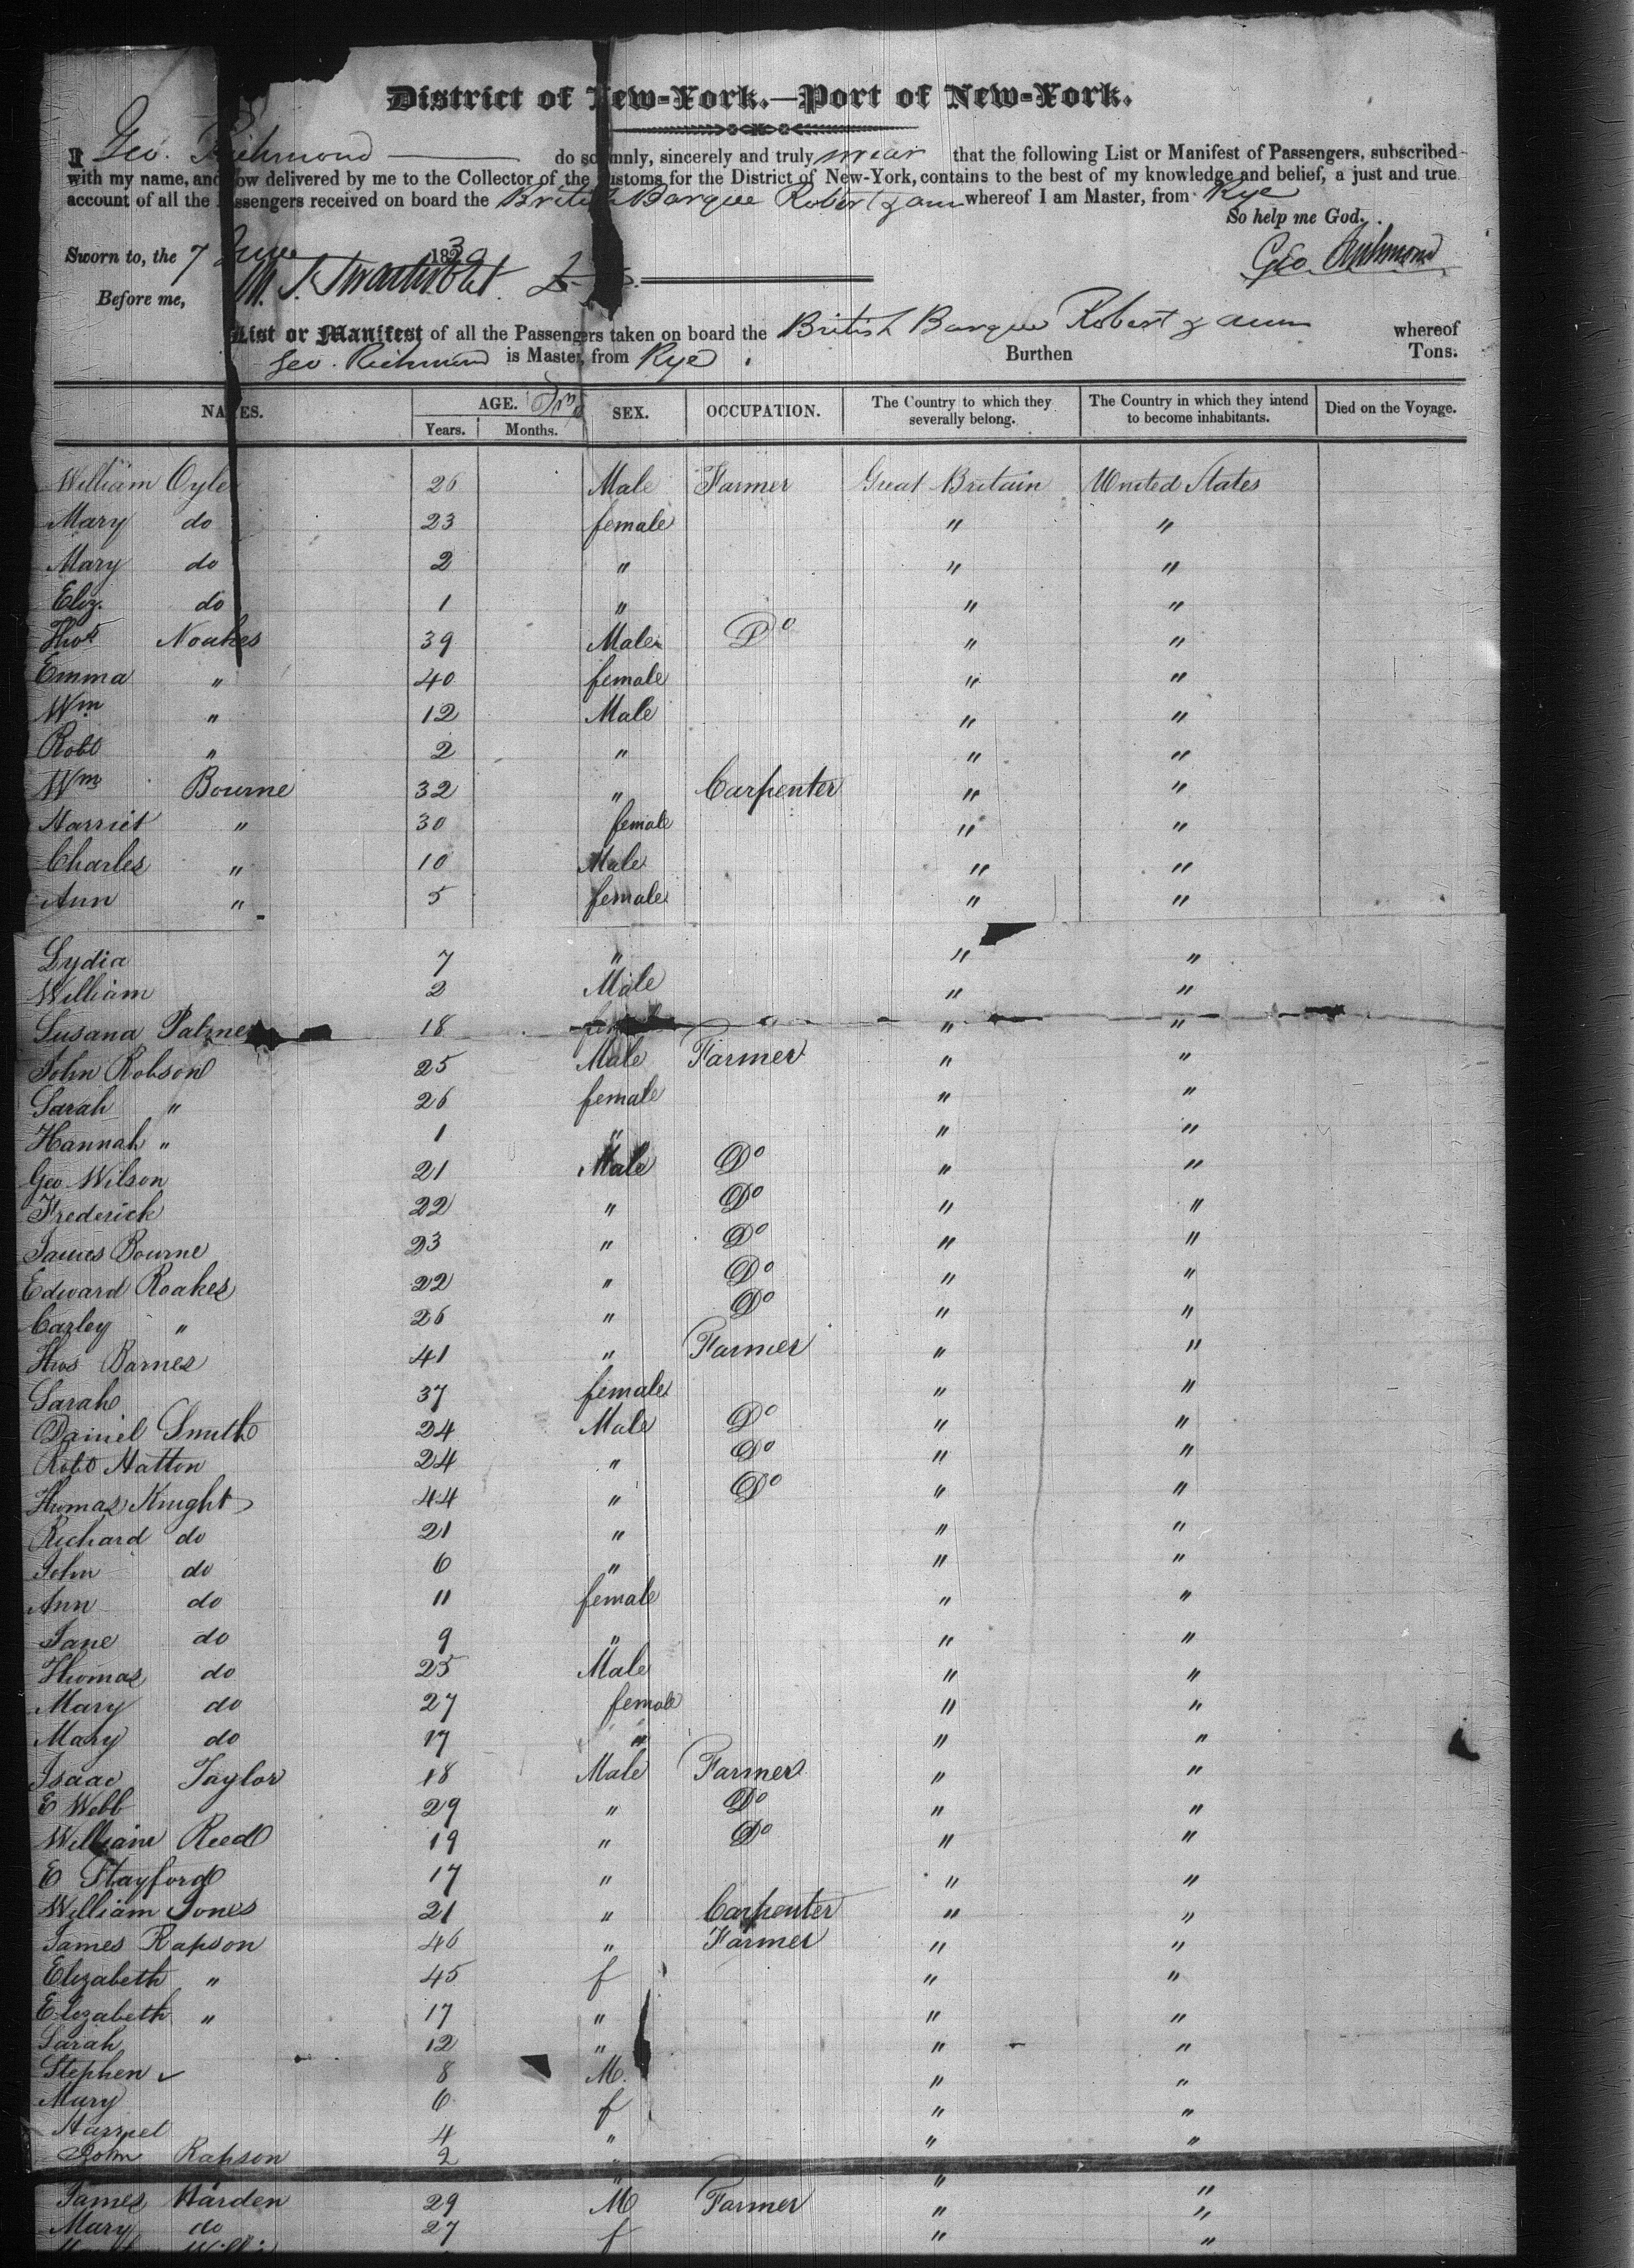 District of New-York.—Port of New-York.
I Geo. Richmond do solemnly, sincerely and truly swear that the following List or Manifest of Passengers, subscribed
with my name, and now delivered by me to the Collector of the Customs for the District of New-York, contains to the best of my knowledge and belief, a just and true
account of all the Passengers received on board the British Barque Robert & Ann whereof I am Master, from Rye
So help me God.
Sworn to, the 7 June 1830 Geo. Richmond
Before me,
List or Manifest of all the Passengers taken on board the British Barque Robert & Ann whereof
Geo. Richmond is Master, from Rye. Burthen Tons.
NAMES. AGE. SEX. OCCUPATION. The Country to which they severally belong. The Country in which they intend to become inhabitants. Died on the Voyage.
Years. Months.
William Oyler 26 Male Farmer Great Britain United States
Mary do 23 female " "
Mary do 2 " " "
Eliz. do 1 " " "
Thos Noakes 39 Male Do " "
Emma " 40 female " "
Wm " 12 Male " "
Robt " 2 " " "
Wm Bourne 32 " Carpenter " "
Harriet " 30 female " "
Charles " 10 Male " "
Ann " 5 female " "
Lydia 7 " " "
William 2 Male " "
Susana Palmer 18 " "
John Robson 25 Male Farmer " "
Sarah " 26 female " "
Hannah " 1 " " "
Geo Wilson 21 Male Do " "
Frederick 22 " Do " "
James Bourne 23 " Do " "
Edward Roakes 22 " Do " "
" 26 " Do " "
Thos Barnes 41 " Farmer " "
Sarah 37 female " "
Daniel Smith 24 Male Do " "
Robt Hatton 24 " Do " "
Thomas Knight 44 " Do " "
Richard do 21 " " "
John do 6 " " "
Ann do 11 female " "
Jane do 9 " " "
Thomas do 25 Male " "
Mary do 27 female " "
Mary do 17 " " "
Isaac Taylor 18 Male Farmer " "
E Webb 29 " Do " "
William Reed 19 " Do " "
E Stayford 17 " " "
William Jones 21 " Carpenter " "
James Rapson 46 " Farmer " "
Elizabeth " 45 f " "
Elizabeth " 17 " " "
Sarah 12 " " "
Stephen 8 M. " "
Mary 6 f " "
4 " " "
John Rapson 2 " " "
James Harden 29 M Farmer " "
Mary do 27 f " "